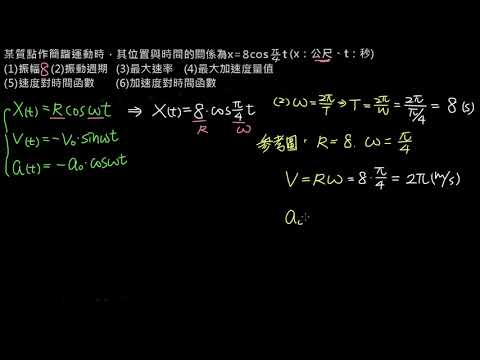 某質點作簡諧運動時，其位置與時間的關係為x=8cos π/4 t (x：公尺、t：秒)
(1)振幅 8 (2)振動週期 (3)最大速率 (4)最大加速度量值
(5)速度對時間函數 (6)加速度對時間函數
X(t)=R cosωt ⇒ X(t)=8·cos π/4 t
R ω
V(t)=-V₀·sinωt
a(t)=-a₀·cosωt
(2) ω=2π/T ⇒ T=2π/ω=2π/(π/4)=8 (s)
參考圓，R=8. ω=π/4
V=Rω=8·π/4=2π(m/s)
ac